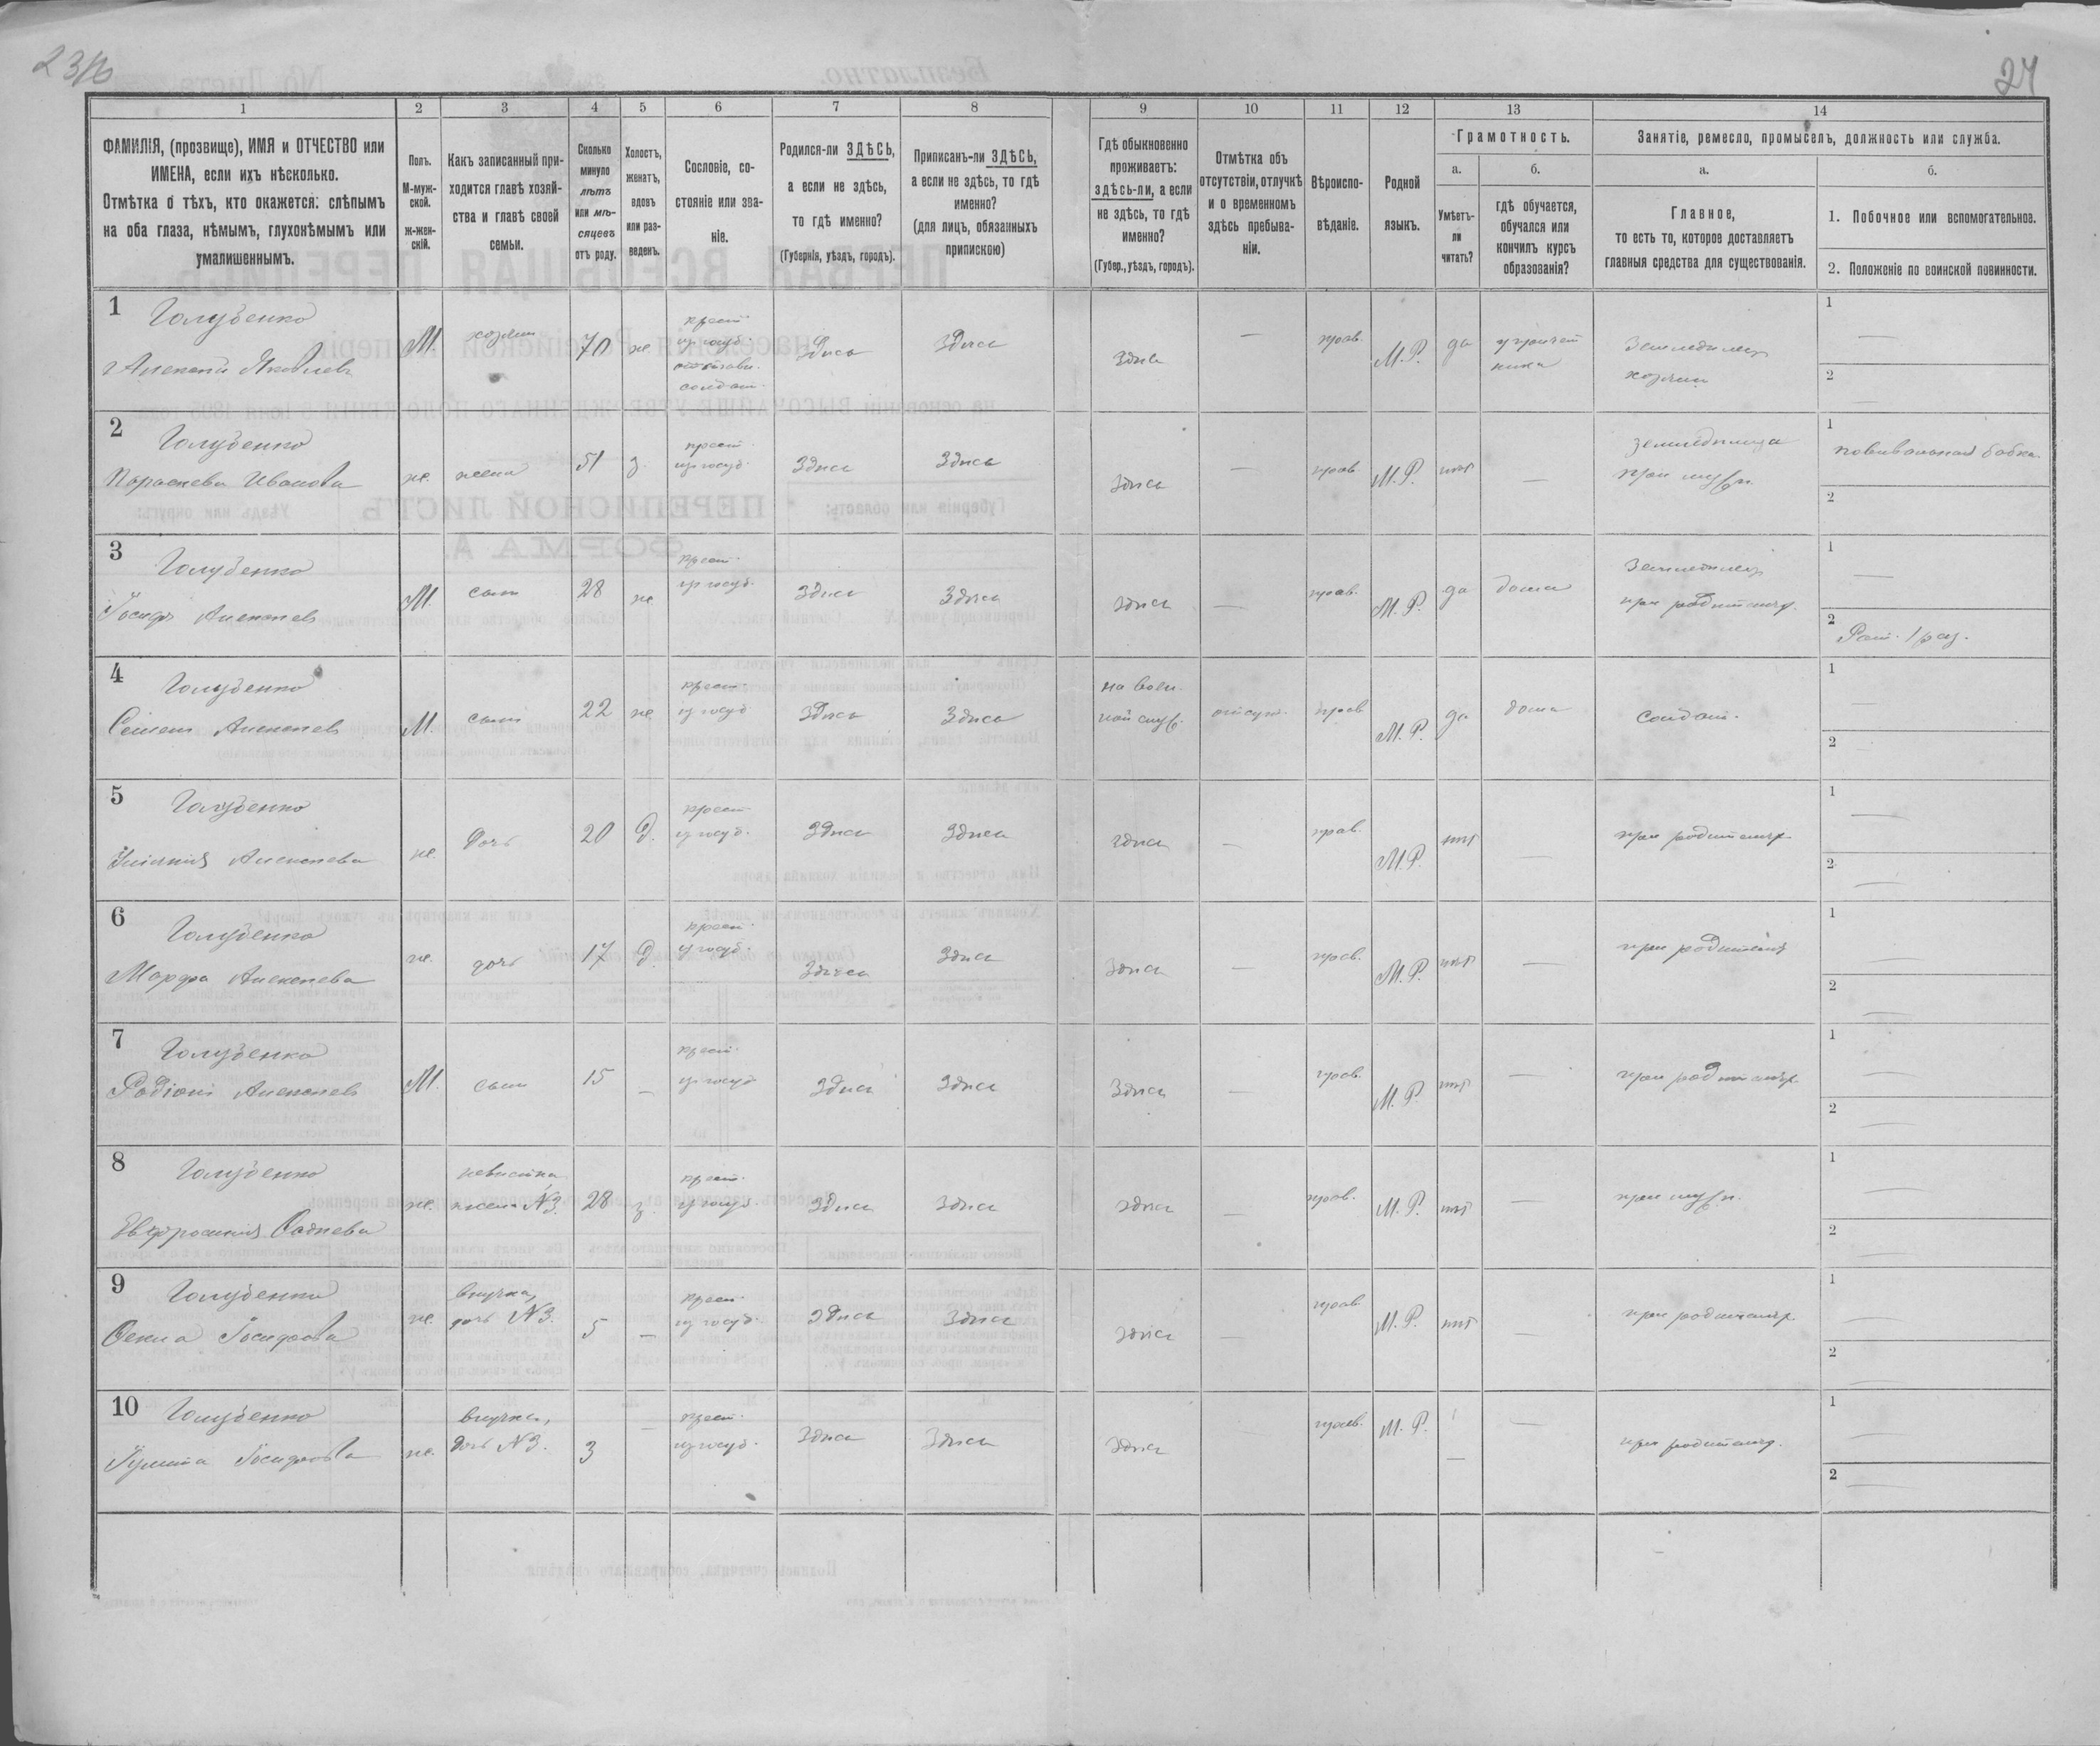 27
1 2 3 4 5 6 7 8 9 10 11 12 13 14
ФАМИЛІЯ, (прозвище), ИМЯ и ОТЧЕСТВО или
ИМЕНА, если ихъ нѣсколько.
Отмѣтка о тѣхъ, кто окажется: слѣпымъ
на оба глаза, нѣмымъ, глухонѣмымъ или
умалишеннымъ.
Полъ.
М-муж-
ской.
Ж-жен-
скій.
Какъ записанный при-
ходится главѣ хозяй-
ства и главѣ своей
семьи.
Сколько
минуло
лѣтъ
или мѣ-
сяцевъ
отъ роду.
Холостъ,
женатъ,
вдовъ
или раз-
веденъ.
Сословіе, со-
стояніе или зва-
ніе.
Родился-ли ЗДѢСЬ,
а если не здѣсь,
то гдѣ именно?
(Губернія, уѣздъ, городъ).
Приписанъ-ли ЗДѢСЬ,
а если не здѣсь, то гдѣ
именно?
(для лицъ, обязанныхъ
припискою)
Гдѣ обыкновенно
проживаетъ:
здѣсь-ли, а если
не здѣсь, то гдѣ
именно?
(Губер., уѣздъ, городъ).
Отмѣтка объ
отсутствіи, отлучкѣ
и о временномъ
здѣсь пребыва-
ніи.
Вѣроиспо-
вѣданіе.
Родной
языкъ.
Грамотность.
а.
Умѣетъ-
ли
читать?
б.
гдѣ обучается,
обучался или
кончилъ курсъ
образованія?
Занятіе, ремесло, промыселъ, должность или служба.
а.
Главное,
то есть то, которое доставляетъ
главныя средства для существованія.
б.
1. Побочное или вспомогательное.
2. Положеніе по воинской повинности.
1 Голубенко
Алексѣй Яковлевъ
М. хозяинъ 70 ж.
крест.
из госуд.
солдат.
Здѣсь Здѣсь Здѣсь — прав. М. Р. да
Земледѣлец
хозяин
1 —
2 —
2 Голубенко
Параскева Иванова
ж. жена 51 з.
крест.
из госуд.
Здѣсь Здѣсь Здѣсь — прав. М. Р. нѣт —
земледѣлица
при мужѣ.
1
повивальная бабка
2
3 Голубенко
Іосифъ Алексѣевъ
М. сын 28 ж.
крест.
из госуд.
Здѣсь Здѣсь здѣсь — прав. М. Р. да дома
Земледѣлец
при родителях.
1 —
2
Рат. 1 раз.
4 Голубенко
Семенъ Алексѣевъ
М. сын 22 ж.
крест.
из госуд
Здѣсь Здѣсь
на воен-
ной служ.
отсут. прав. М. Р. да дома
Солдат.
1
2
5 Голубенко
Алексѣева
ж. дочь 20 д.
крест
из госуд.
Здѣсь Здѣсь здѣсь — прав. М. Р. нѣт —
при родителях.
1 —
2 —
6 Голубенко
Марфа Алексѣева
ж. дочь 17 д.
крест.
из госуд.
Здѣсь Здѣсь Здѣсь — прав. М. Р. нѣт —
при родителях
1 —
2 —
7 Голубенко
Родіонъ Алексѣевъ
М. сын 15 —
крест.
из госуд
Здѣсь Здѣсь Здѣсь — прав. М. Р. нѣт —
при родителях.
1 —
2 —
8 Голубенко
Евфросинія
ж.
невѣстка
жена N3.
28 з.
крест.
из госуд.
Здѣсь Здѣсь здѣсь — прав. М. Р. нѣт —
при мужѣ.
1 —
2 —
9 Голубенко
Іосифова
ж.
внучка,
дочь N3.
5 —
крест.
из госуд.
Здѣсь Здѣсь здѣсь — прав. М. Р. нѣт —
при родителях.
1 —
2 —
10 Голубенко
Іосифова
ж.
внучка,
дочь N3.
3 —
крест.
из госуд.
Здѣсь Здѣсь Здѣсь прав. М. Р. — —
при родителях.
1 —
2 —